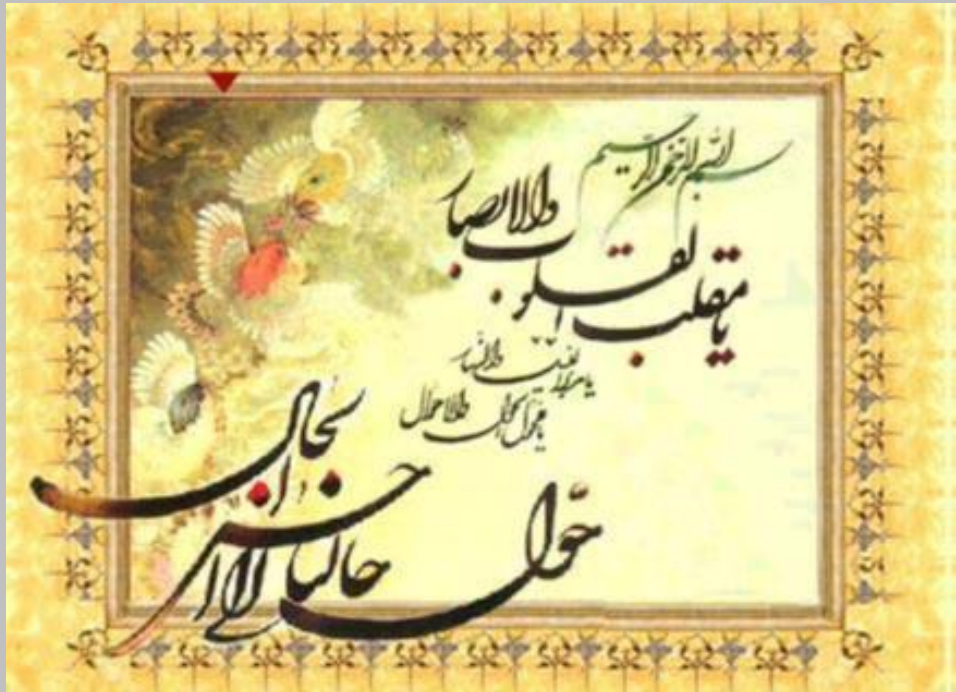 بسم الله الرحمن الرحیم
یا مقلب القلوب والابصار
یا مدبر اللیل والنهار
یا محول الحول والاحوال
حول حالنا الی احسن الحال